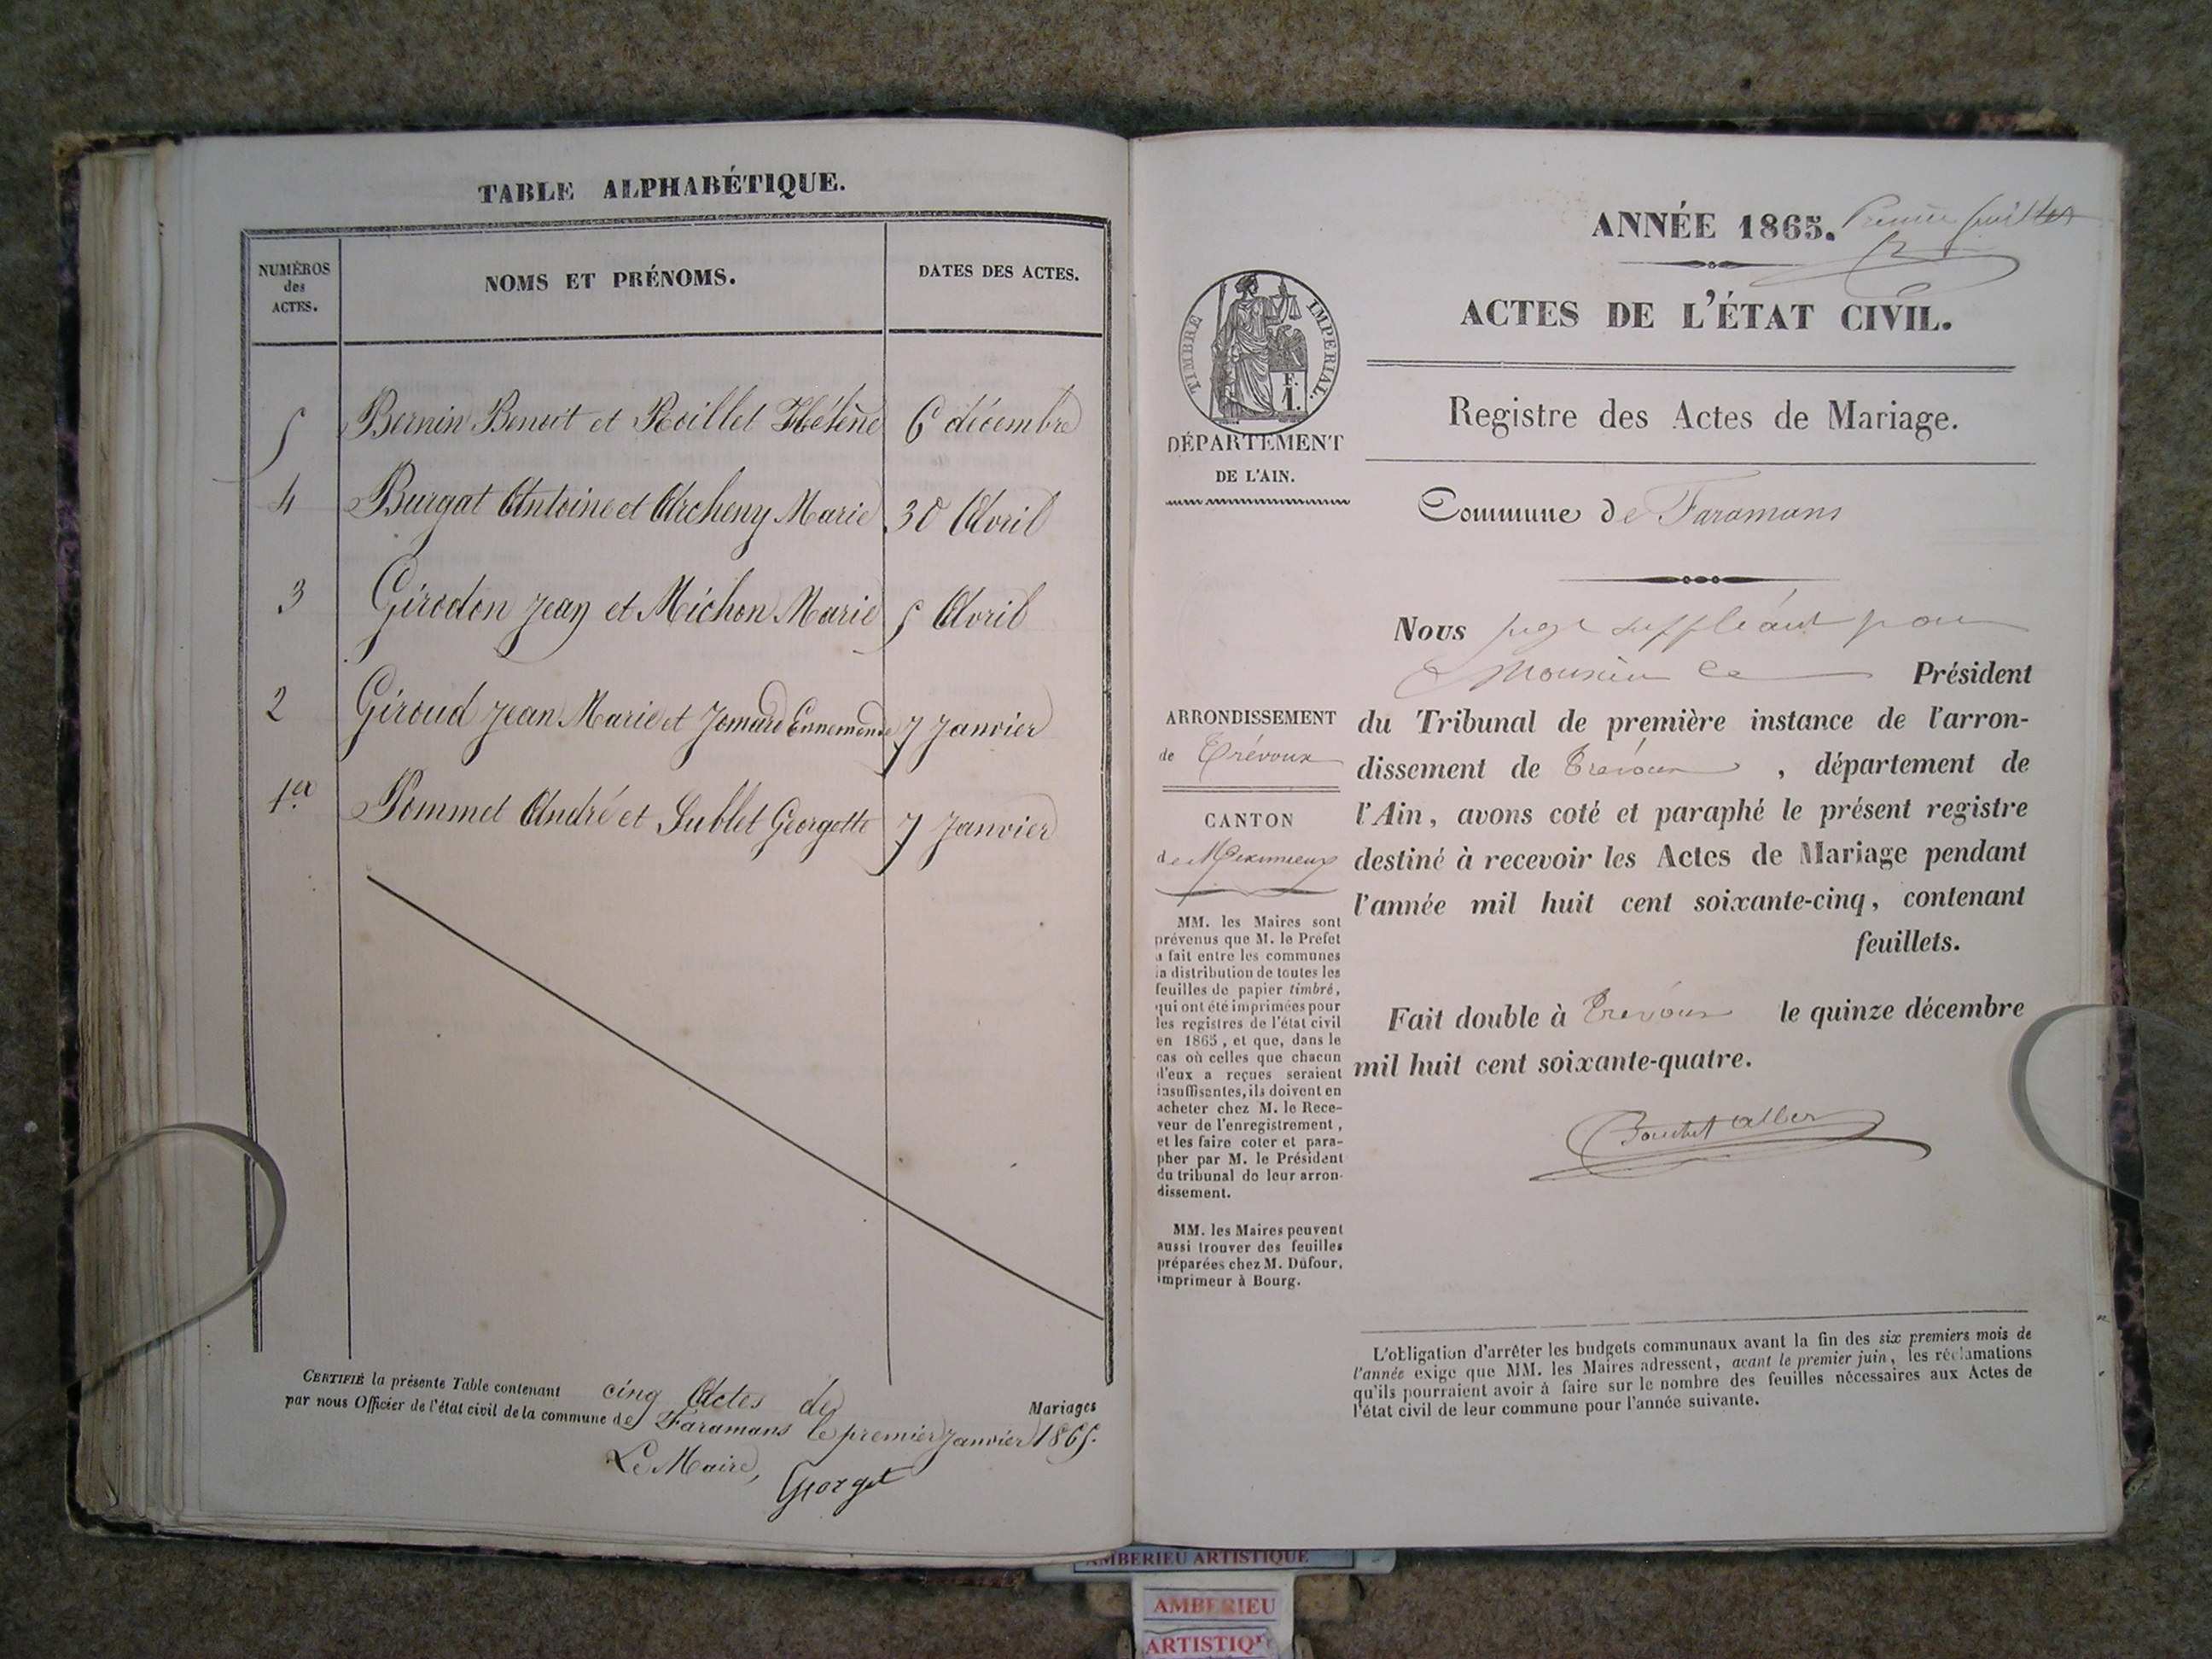 TABLE ALPHABÉTIQUE.
NUMÉROS
des
ACTES.
NOMS ET PRÉNOMS.
DATES DES ACTES.
5 Bernin Benoit et Roillet Hélène 6 décembre
4 Burgat Antoine et Archeny Marie 30 Avril
3 Girodon Jean et Michon Marie 5 Avril
2 Giroud Jean Marie et Jomard Ennemonde 7 Janvier
1er Pommet André et Sublet Georgette 7 Janvier
CERTIFIÉ la présente Table contenant cinq Actes de Mariages
par nous Officier de l'état civil de la commune de Faramans le premier Janvier 1865.
Le Maire,
Georget
ANNÉE 1865. Premier feuillet
ACTES DE L'ÉTAT CIVIL.
TIMBRE IMPERIAL.
F.
1.
DÉPARTEMENT
DE L'AIN.
Registre des Actes de Mariage.
Commune de Faramans
Nous juge suppléant pour
Monsieur le Président
du Tribunal de première instance de l'arron-
dissement de Trévoux, département de
l'Ain, avons coté et paraphé le présent registre
destiné à recevoir les Actes de Mariage pendant
l'année mil huit cent soixante-cinq, contenant
feuillets.
Fait double à Trévoux le quinze décembre
mil huit cent soixante-quatre.
ARRONDISSEMENT
de Trévoux
CANTON
de Meximieux
MM. les Maires sont
prévenus que M. le Préfet
a fait entre les communes
la distribution de toutes les
feuilles de papier timbré,
qui ont été imprimées pour
les registres de l'état civil
en 1865, et que, dans le
cas où celles que chacun
d'eux a reçues seraient
insuffisantes, ils doivent en
acheter chez M. le Rece-
veur de l'enregistrement,
et les faire coter et para-
pher par M. le Président
du tribunal de leur arron-
dissement.
MM. les Maires peuvent
aussi trouver des feuilles
préparées chez M. Dufour,
imprimeur à Bourg.
L'obligation d'arrêter les budgets communaux avant la fin des six premiers mois de
l'année exige que MM. les Maires adressent, avant le premier juin, les réclamations
qu'ils pourraient avoir à faire sur le nombre des feuilles nécessaires aux Actes de
l'état civil de leur commune pour l'année suivante.
AMBERIEU ARTISTIQUE
AMBERIEU
ARTISTIQU